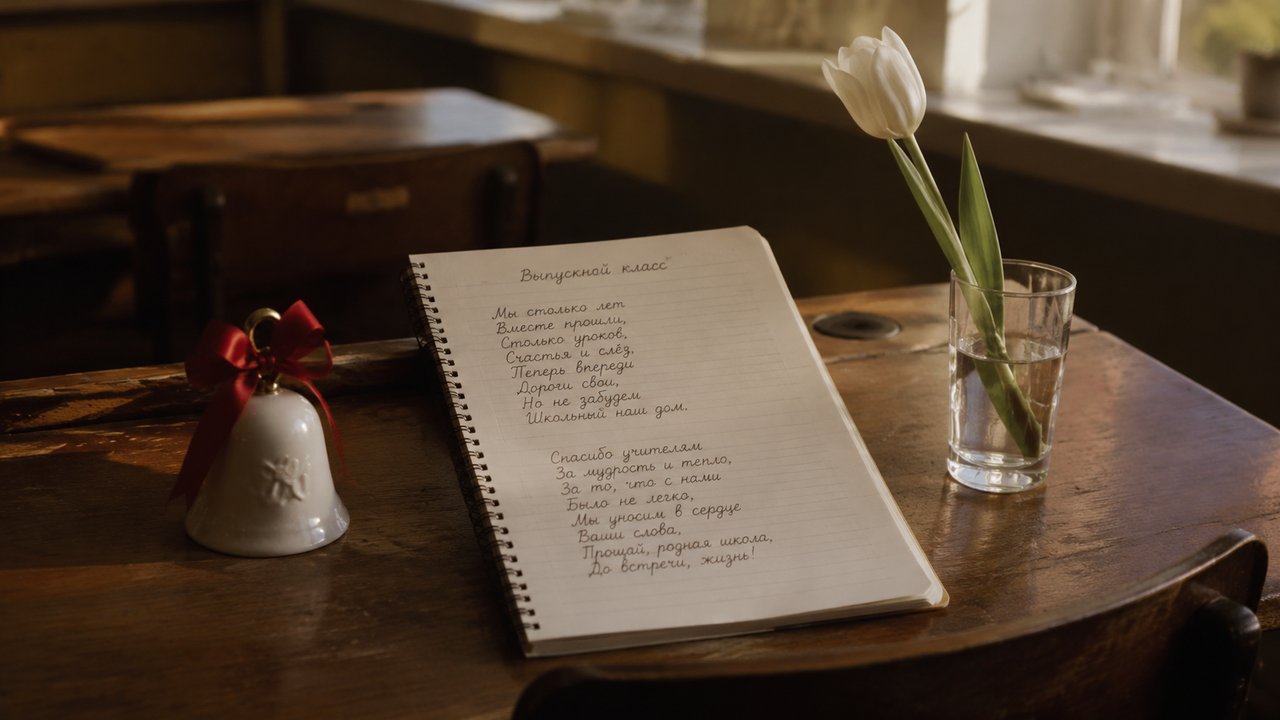 Выпускной класс
Мы столько лет
Вместе прошли,
Столько уроков,
Счастья и слёз,
Теперь впереди
Дороги свои,
Но не забудем
Школьный наш дом.
Спасибо учителям
За мудрость и тепло,
За то, что с нами
Было не легко,
Мы уносим в сердце
Ваши слова,
Прощай, родная школа,
До встречи, жизнь!